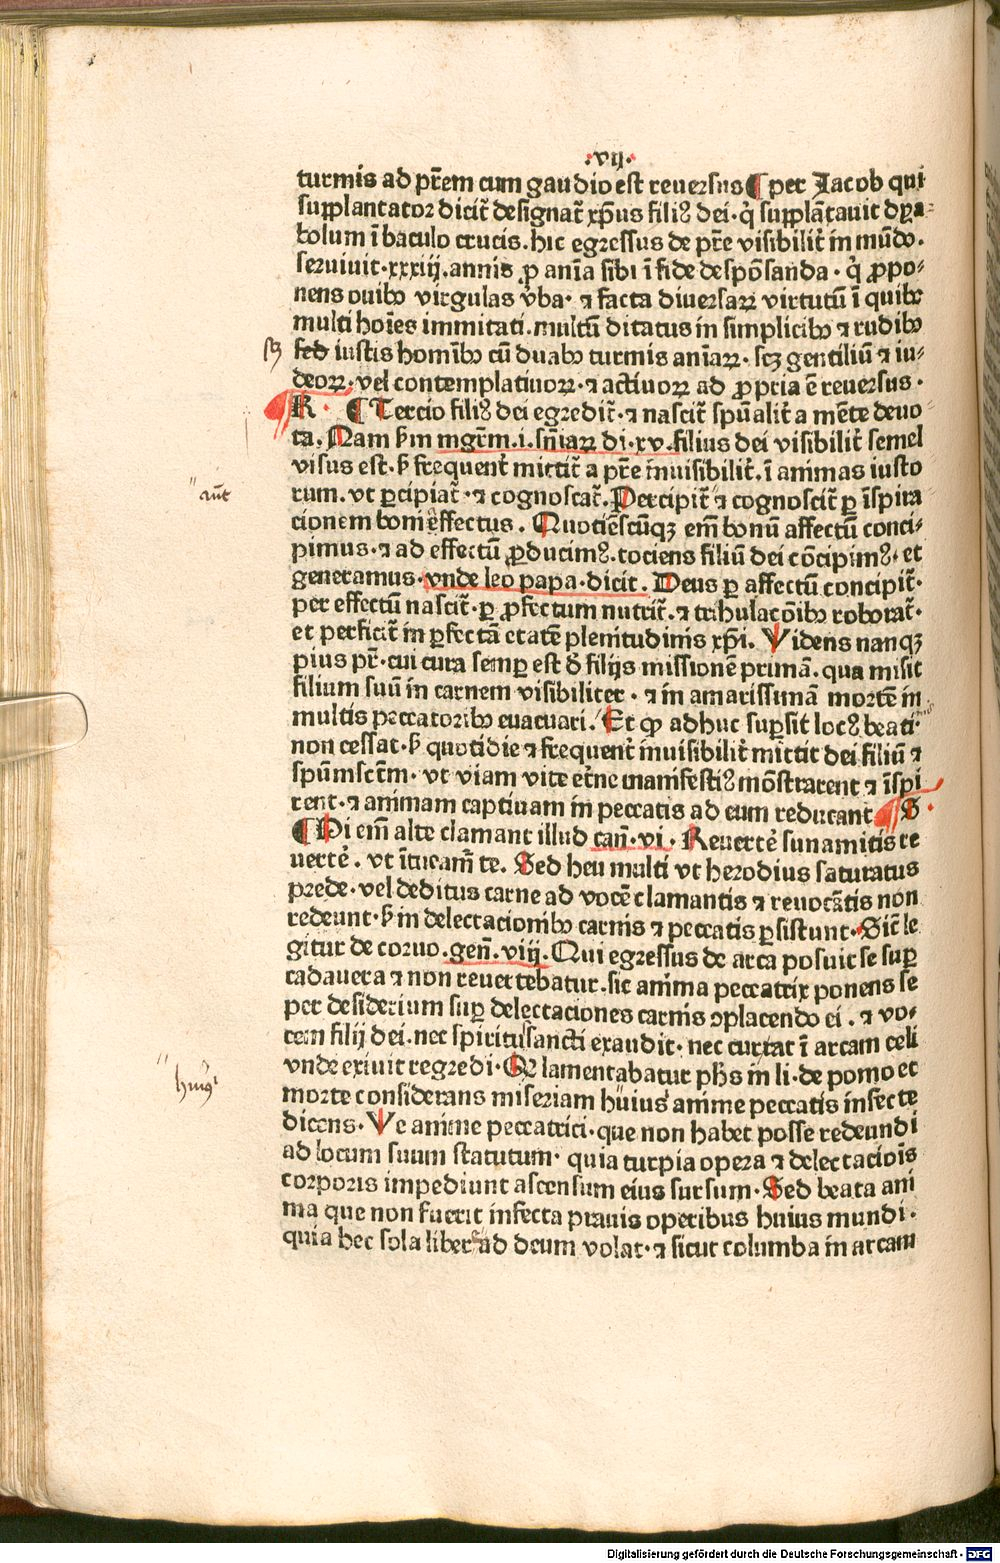 ·vij·
turmis ad pr̄em cum gaudio est reuersus ¶ per Jacob qui
supplantator dicit̄ designat̄ xp̄us filiꝰ dei· q̇ supplātauit dya-
bolum ī baculo crucis. hic egressus de pr̄e visibilit̄ in mūdo.
seruiuit·xxxiij.annis ꝓ anīa sibi ī fide despōsanda· q̇ ꝓpo⸗
nens ouibꝰ virgulas v̄ba· ⁊ facta diuersaꝝ virtutū ī quibꝰ
multi hoīes immitati. multū ditatus in simplicibꝰ ⁊ rudibꝰ
sed iustis homībꝰ cū duabꝰ turmis anīaꝝ· scꝫ gentiliū ⁊ iu⸗
deoꝝ· vel contemplatiuoꝝ· ⁊ actiuoꝝ ad ꝓpria ē reuersus·
R· ¶ Tercio filiꝰ dei egredit̄· ⁊ nascit̄ spūalit̄ a mēte deuo-
ta. Nam b̄m mgr̄m.i.sn̄iaꝝ di·xv·filius dei visibilit̄ semel
visus est· b̄ frequent̄ mittit̄ a pr̄e inuisibilit̄. ī animas iusto
rum. vt ꝑcipiat̄· ⁊ cognoscat̄. Percipit̄ ⁊ cognoscit̄ ꝑ īspira
cionem boni effectus. Quotiēscūqꝫ em̄ bonū affectū conci⸗
pimus· ⁊ ad effectū ꝓducimꝰ. tociens filiū dei cōcipimꝰ· et
generamus· vnde leo papa· dicit. Deus ꝑ affectū concipit̄·
per effectū nascit̄· ꝑ ꝓfectum nutrit̄· ⁊ tribulacōibꝰ roborat̄·
et perficit̄ in ꝑfectā etatē plenitudinis xp̄i. Videns nanqꝫ
pius pr̄· cui cura semꝑ est ď filijs missionē primā. qua misit
filium suū in carnem visibiliter· ⁊ in amarissimā mortē in
multis peccatoribꝰ euacuari. Et ꝙ adhuc suꝑsit locꝰ beati·
non cessat· b̄ quotidie ⁊ frequent̄ inuisibilit̄ mittit dei filiū ⁊
spūmsctm̄· vt viam vite et̄ne manifestiꝰ mōstrarent ⁊ īspi
rent· ⁊ animam captiuam in peccatis ad eum reducant ¶ S·
¶ Hi em̄ alte clamant illud can̄·vi· Reuerte ̇sunamitis re
uerte ̇. vt ītueam̄ te. Sed heu multi vt herodius saturatus
prede· vel deditus carne ad vocē clamantis ⁊ reuocātis non
redeunt· b̄ in delectacionibꝰ carnis ⁊ peccatis ꝑsistunt· Sic̄ le
gitur de coruo.gen̄·viij· Qui egressus de arca posuit se suꝑ
cadauera ⁊ non reuertebatur. sic anima peccatrix ponens se
per desiderium suꝑ delectaciones carnis ꝯplacendo ei. ⁊ vo⸗
cem filij dei· nec spiritussancti exaudit· nec curat ī arcam celi
vnde exiuit regredi· Q lamentabatur ph̄s in li·de pomo et
morte considerans miseriam huius anime peccatis infecte
dicens· Ve anime peccatrici· que non habet posse redeundi
ad locum suum statutum· quia turpia opera ⁊ delectacioīs
corporis impediunt ascensum eius sursum· Sed beata ani
ma que non fuerit infecta prauis operibus huius mundi·
quia hec sola liber ad deum volat· ⁊ sicut columba in arcam
scꝫ
aūt
huiꝰ
Digitalisierung gefördert durch die Deutsche Forschungsgemeinschaft - DFG